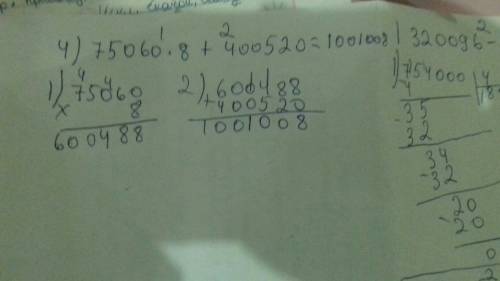 4) 75060 · 8 + 400520 = 1001008
1) 75060
x 8
600488
2) 600488
+ 400520
1001008
320096 -
1) 754000
4
- 35
32
34
- 32
20
- 20
0
2